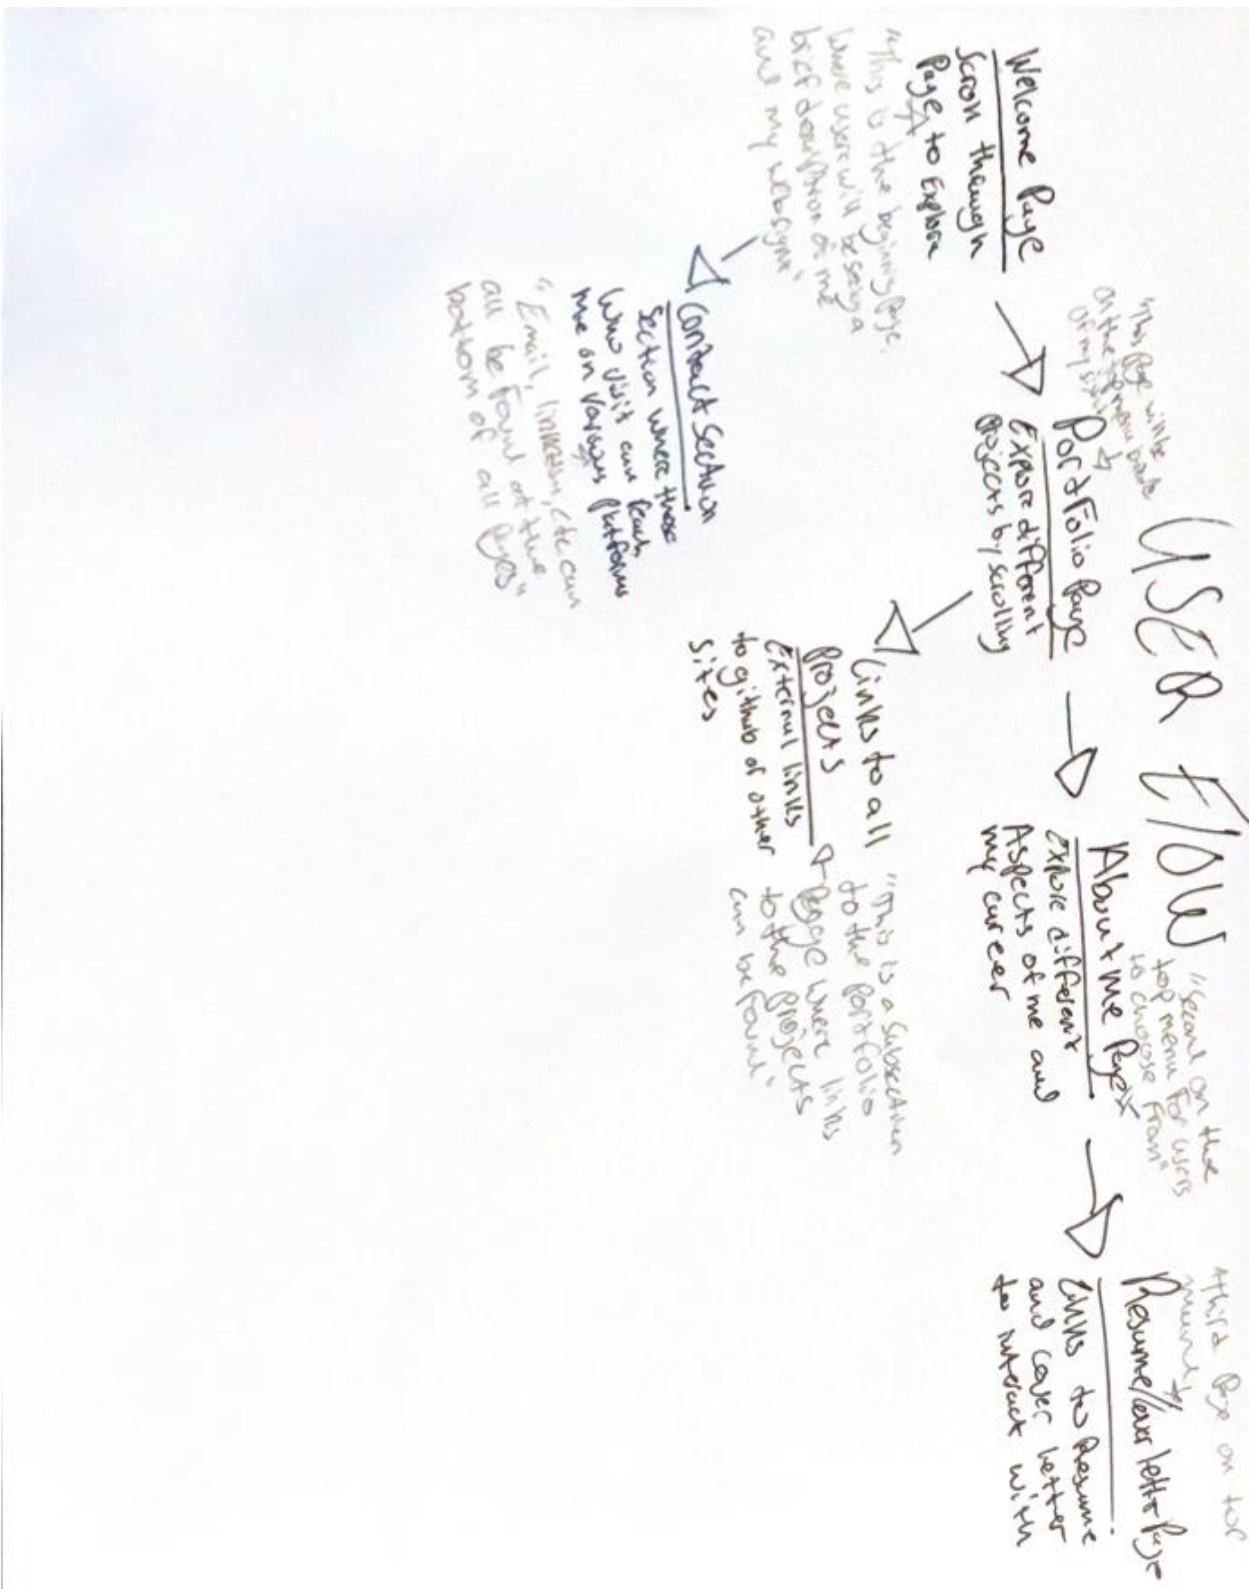 USER FLOW
Welcome Page
Scroll through
Page to Explore
"This is the beginning Page.
Where users will be seeing a
brief description of me
and my
Contact Section
Section where those
who visit can Reach
me on Various Platforms
"Email, linkedin, etc can
all be Found at the
bottom of all Pages"
"This Page will be
on the top menu
of my site"
PortFolio Page
Explore different
Projects by scrolling
Links to all
Projects
External links
to github or other
Sites
"This is a Subsection
to the Portfolio
Page where links
to the projects
can be Found"
"Second on the
top menu For users
to choose From"
About me Page
Explore different
Aspects of me and
my career
third Page on top
menu
Resume/Cover letter Page
Links to Resume
and Cover Letter
to interact with